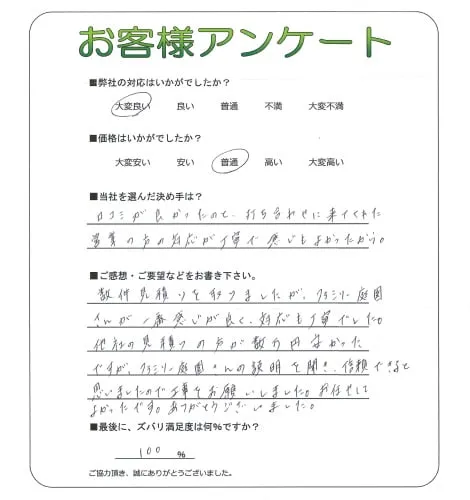 お客様アンケート
■弊社の対応はいかがでしたか？
大変良い 良い 普通 不満 大変不満
■価格はいかがでしたか？
大変安い 安い 普通 高い 大変高い
■当社を選んだ決め手は？
口コミが良かったので、打ち合わせに来てくれた
営業の方の対応が丁寧で感じもよかったから。
■ご感想・ご要望などをお書き下さい。
数件見積りを取りましたが、ファミリー庭園
さんが一番感じが良く、対応も丁寧でした。
他社の見積りの方が数万円安かった
ですが、ファミリー庭園さんの説明を聞き、信頼できると
思いましたので工事をお願いしました。お任せして
よかったです。ありがとうございました。
■最後に、ズバリ満足度は何%ですか？
100 %
ご協力頂き、誠にありがとうございました。